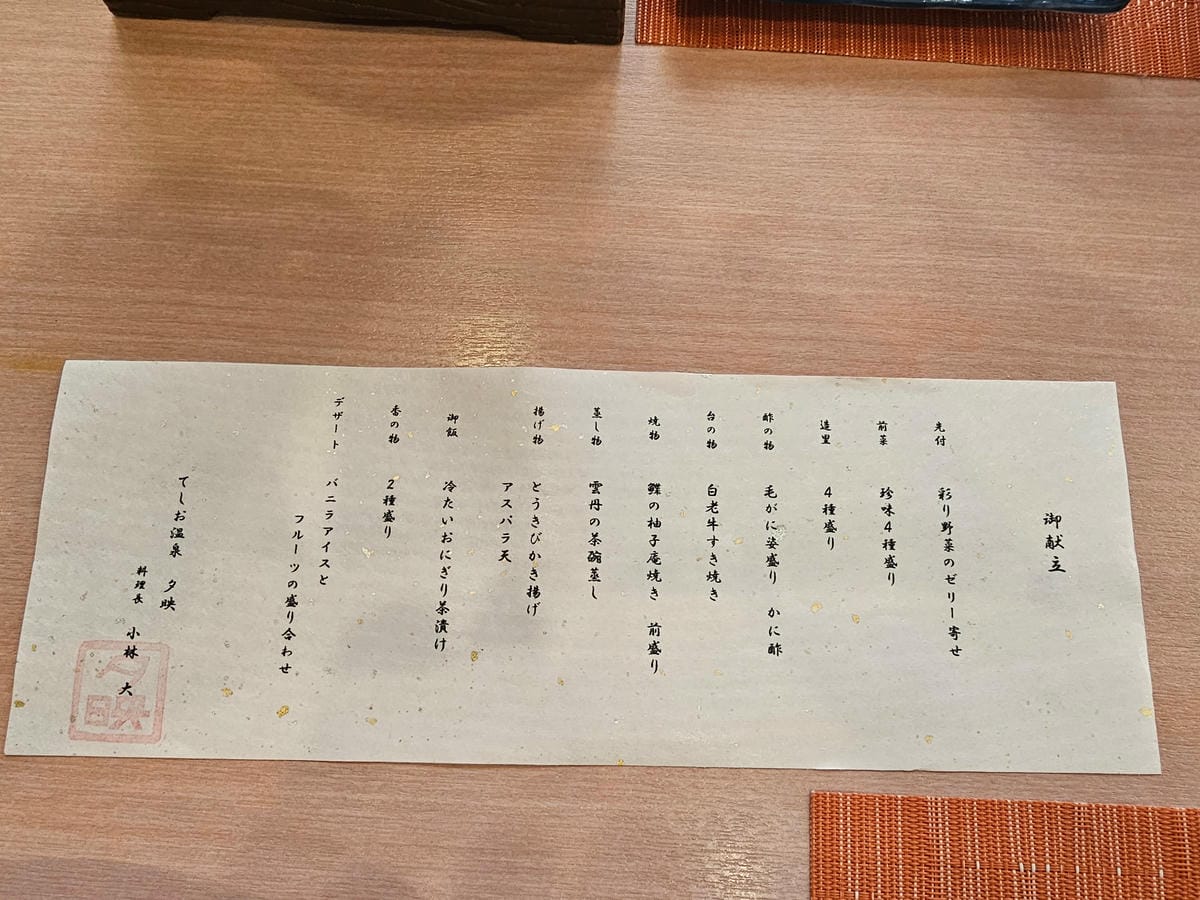 御献立
先付 彩り野菜のゼリー寄せ
前菜 珍味4種盛り
造里 4種盛り
酢の物 毛がに姿盛り かに酢
台の物 白老牛すき焼き
焼物 鰈の柚子庵焼き 前盛り
蒸し物 雲丹の茶碗蒸し
揚げ物 とうきびかき揚げ
アスパラ天
御飯 冷たいおにぎり茶漬け
香の物 2種盛り
デザート バニラアイスと
フルーツの盛り合わせ
てしお温泉 夕映
料理長 小林 大
夕映